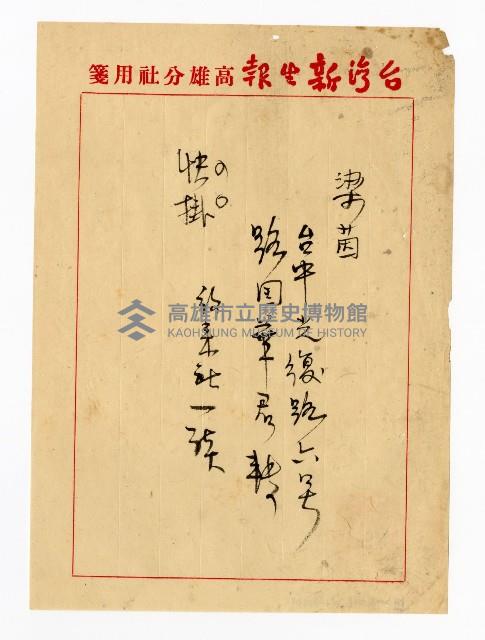 台灣新生報高雄分社用箋
梁茵
台中光復路六号
路
君轉
快掛
社一
高雄市立歷史博物館
KAOHSIUNG MUSEUM OF HISTORY